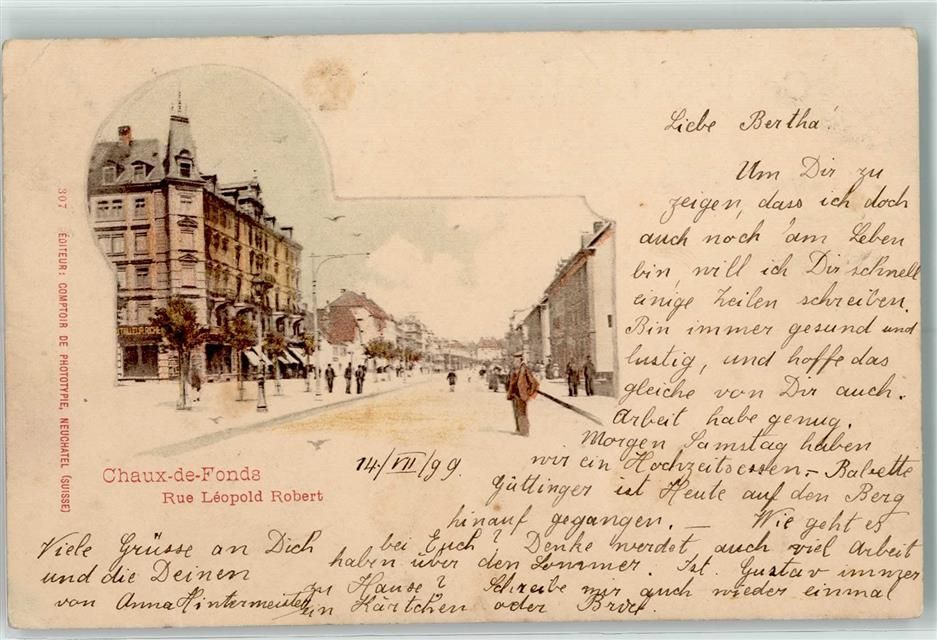 Liebe Bertha!
Um Dir zu
zeigen, dass ich doch
auch noch am Leben
bin, will ich Dir schnell
einige Zeilen schreiben.
Bin immer gesund und
lustig, und hoffe das
gleiche von Dir auch.
Arbeit habe genug.
Morgen Samstag haben
wir ein Hochzeitsessen. –
Güttinger ist Heute auf den Berg
hinauf gegangen. — Wie geht es
bei Euch? Denke werdet auch viel Arbeit
haben über den Sommer. Ist Gustav immer
zu Hause? Schreibe mir auch wieder einmal
ein Kärtchen oder Brief.
Viele Grüsse an Dich
und die Deinen
von Anna Hintermeister
14./VII/99
Chaux-de-Fonds
Rue Léopold Robert
307 ÉDITEUR: COMPTOIR DE PHOTOTYPIE, NEUCHATEL (SUISSE)
TAILLEUR RICHE